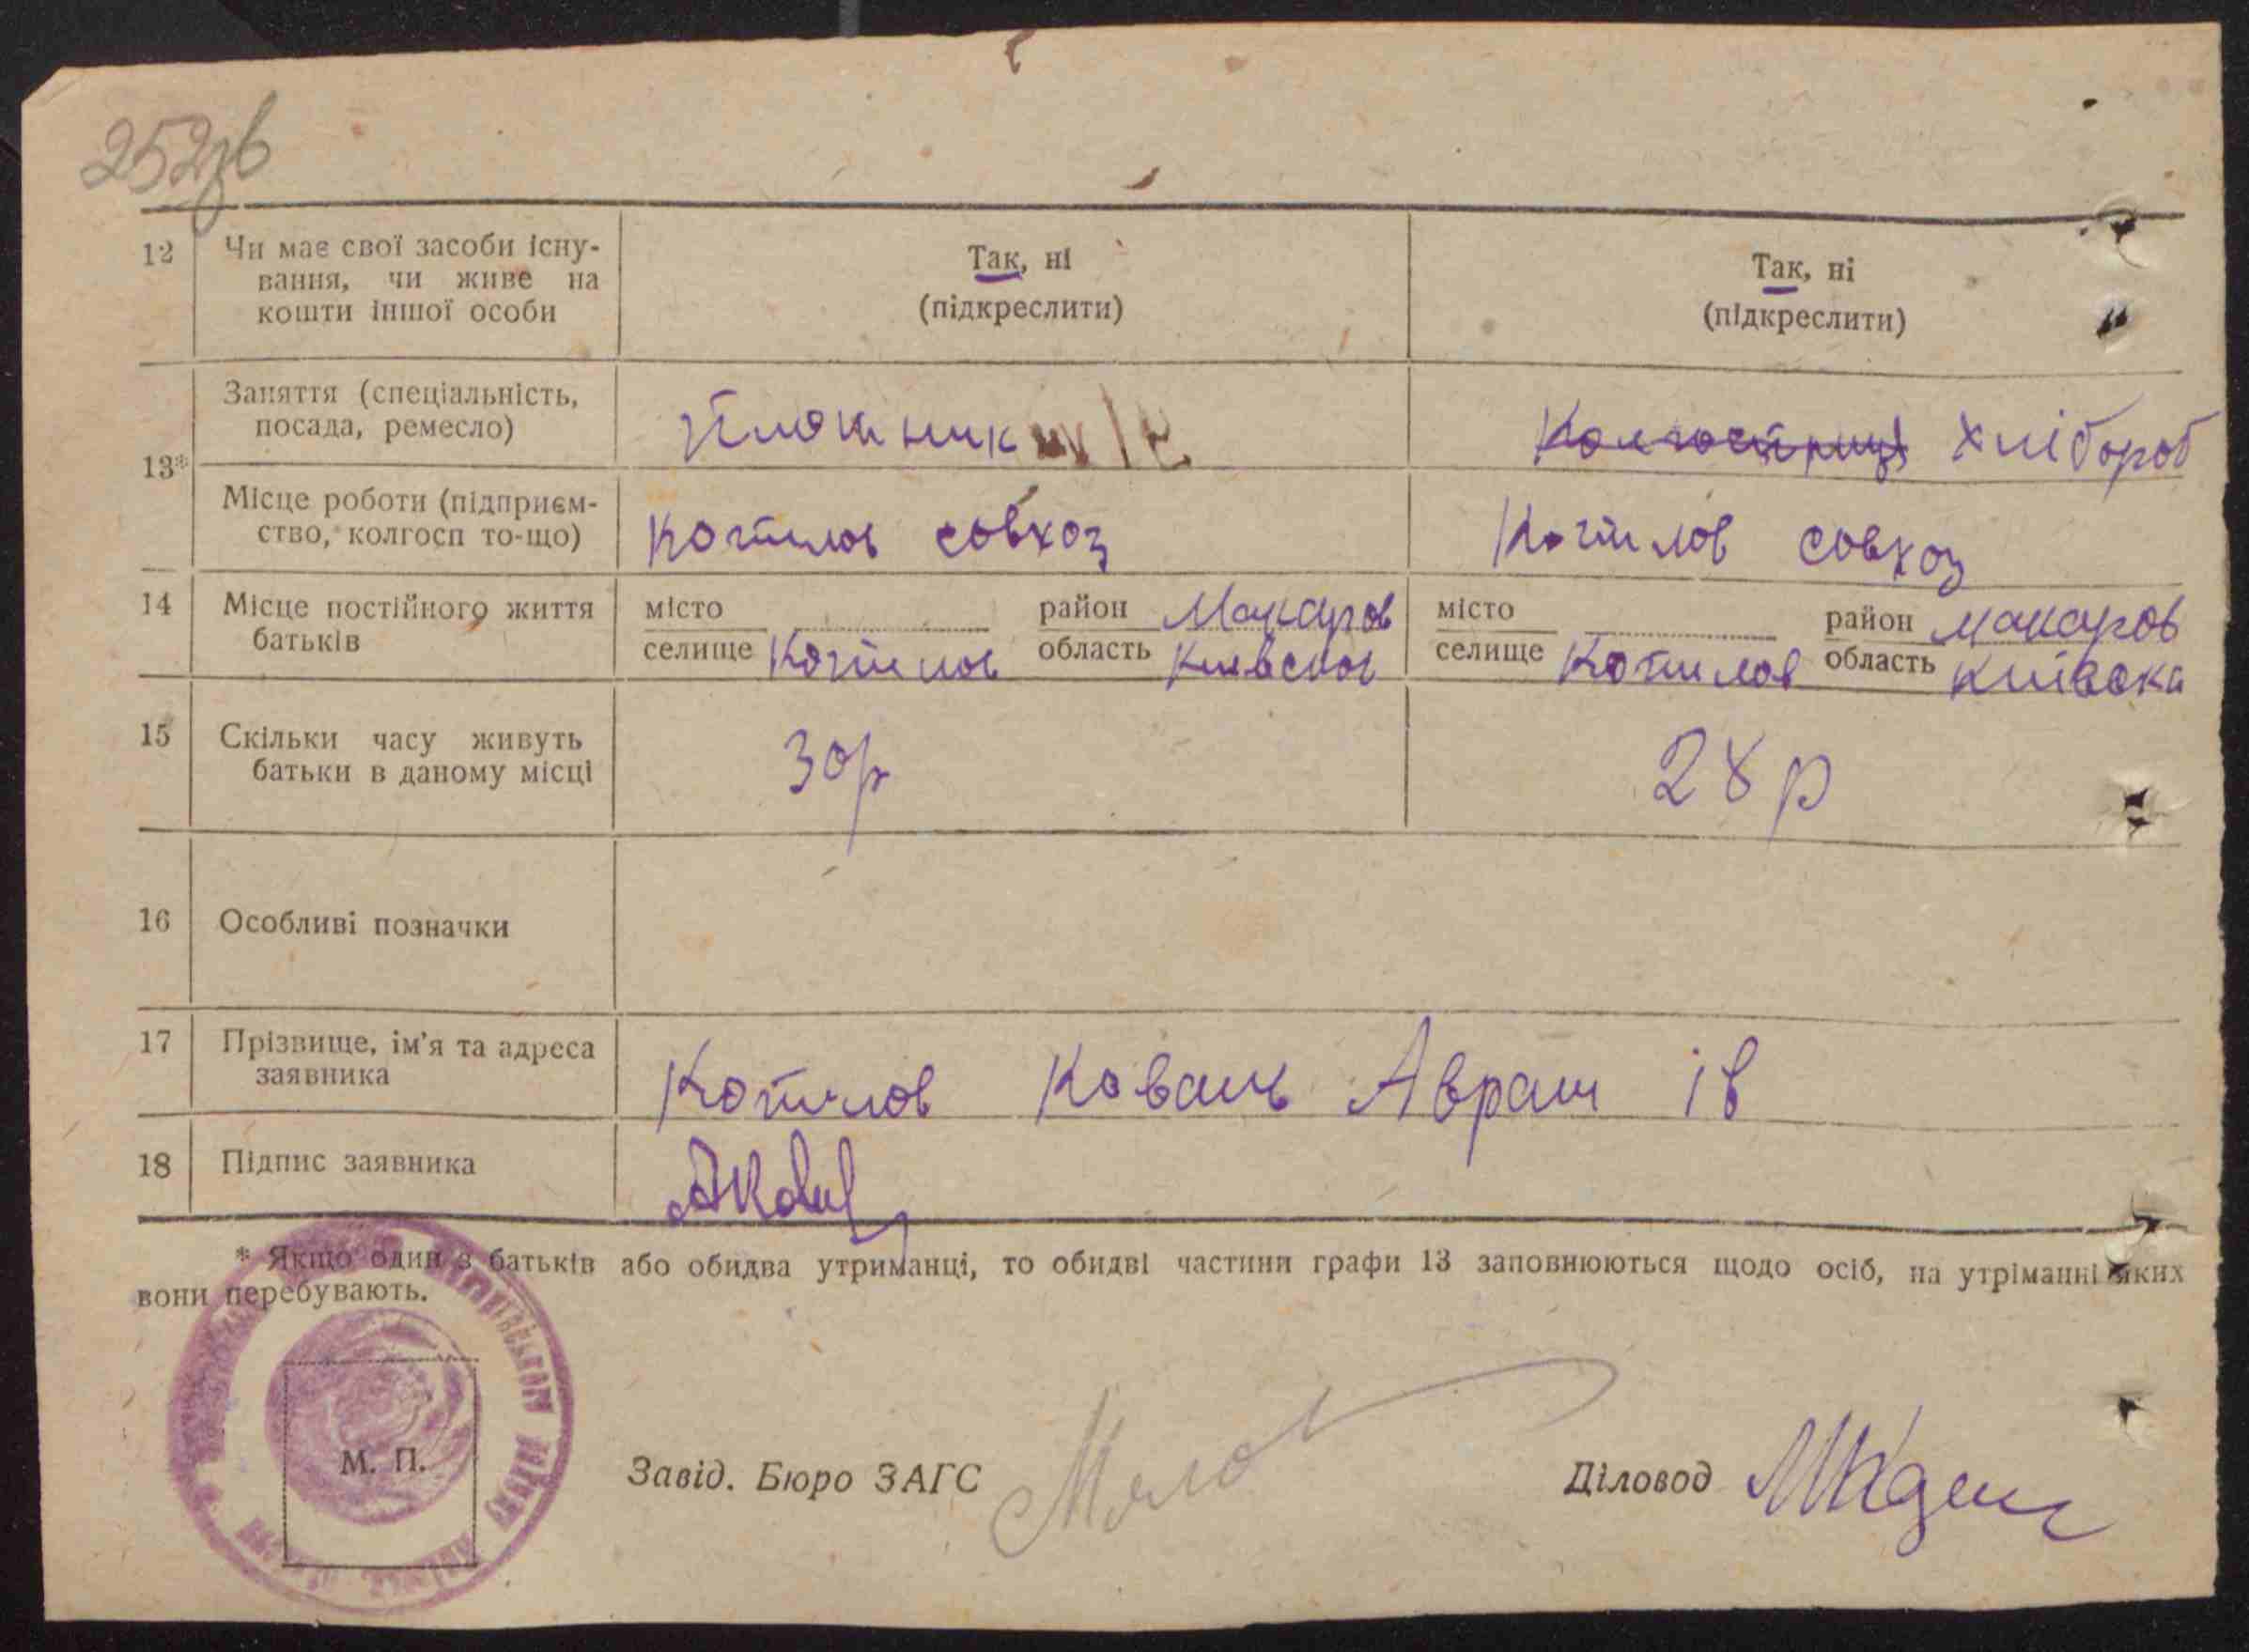 252зв
12 Чи має свої засоби існу-
вання, чи живе на
кошти іншої особи
Так, ні
(підкреслити)
Так, ні
(підкреслити)
13*
Заняття (спеціальність,
посада, ремесло)
Плотник
Колгоспниця Хлібороб
Місце роботи (підприєм-
ство, колгосп то-що)
Копилов совхоз
Копилов совхоз
14 Місце постійного життя
батьків
місто
селище Копилов
район Макаров
область Київськ
місто
селище Копилов
район Макаров
область Київска
15 Скільки часу живуть
батьки в даному місці
30р
28 р
16 Особливі позначки
17 Прізвище, ім'я та адреса
заявника
Копилов Коваль Аврам Ів
18 Підпис заявника
* Якщо один з батьків або обидва утриманці, то обидві частини графи 13 заповнюються щодо осіб, на утріманні яких
вони перебувають.
М. П.
Завід. Бюро ЗАГС
Діловод